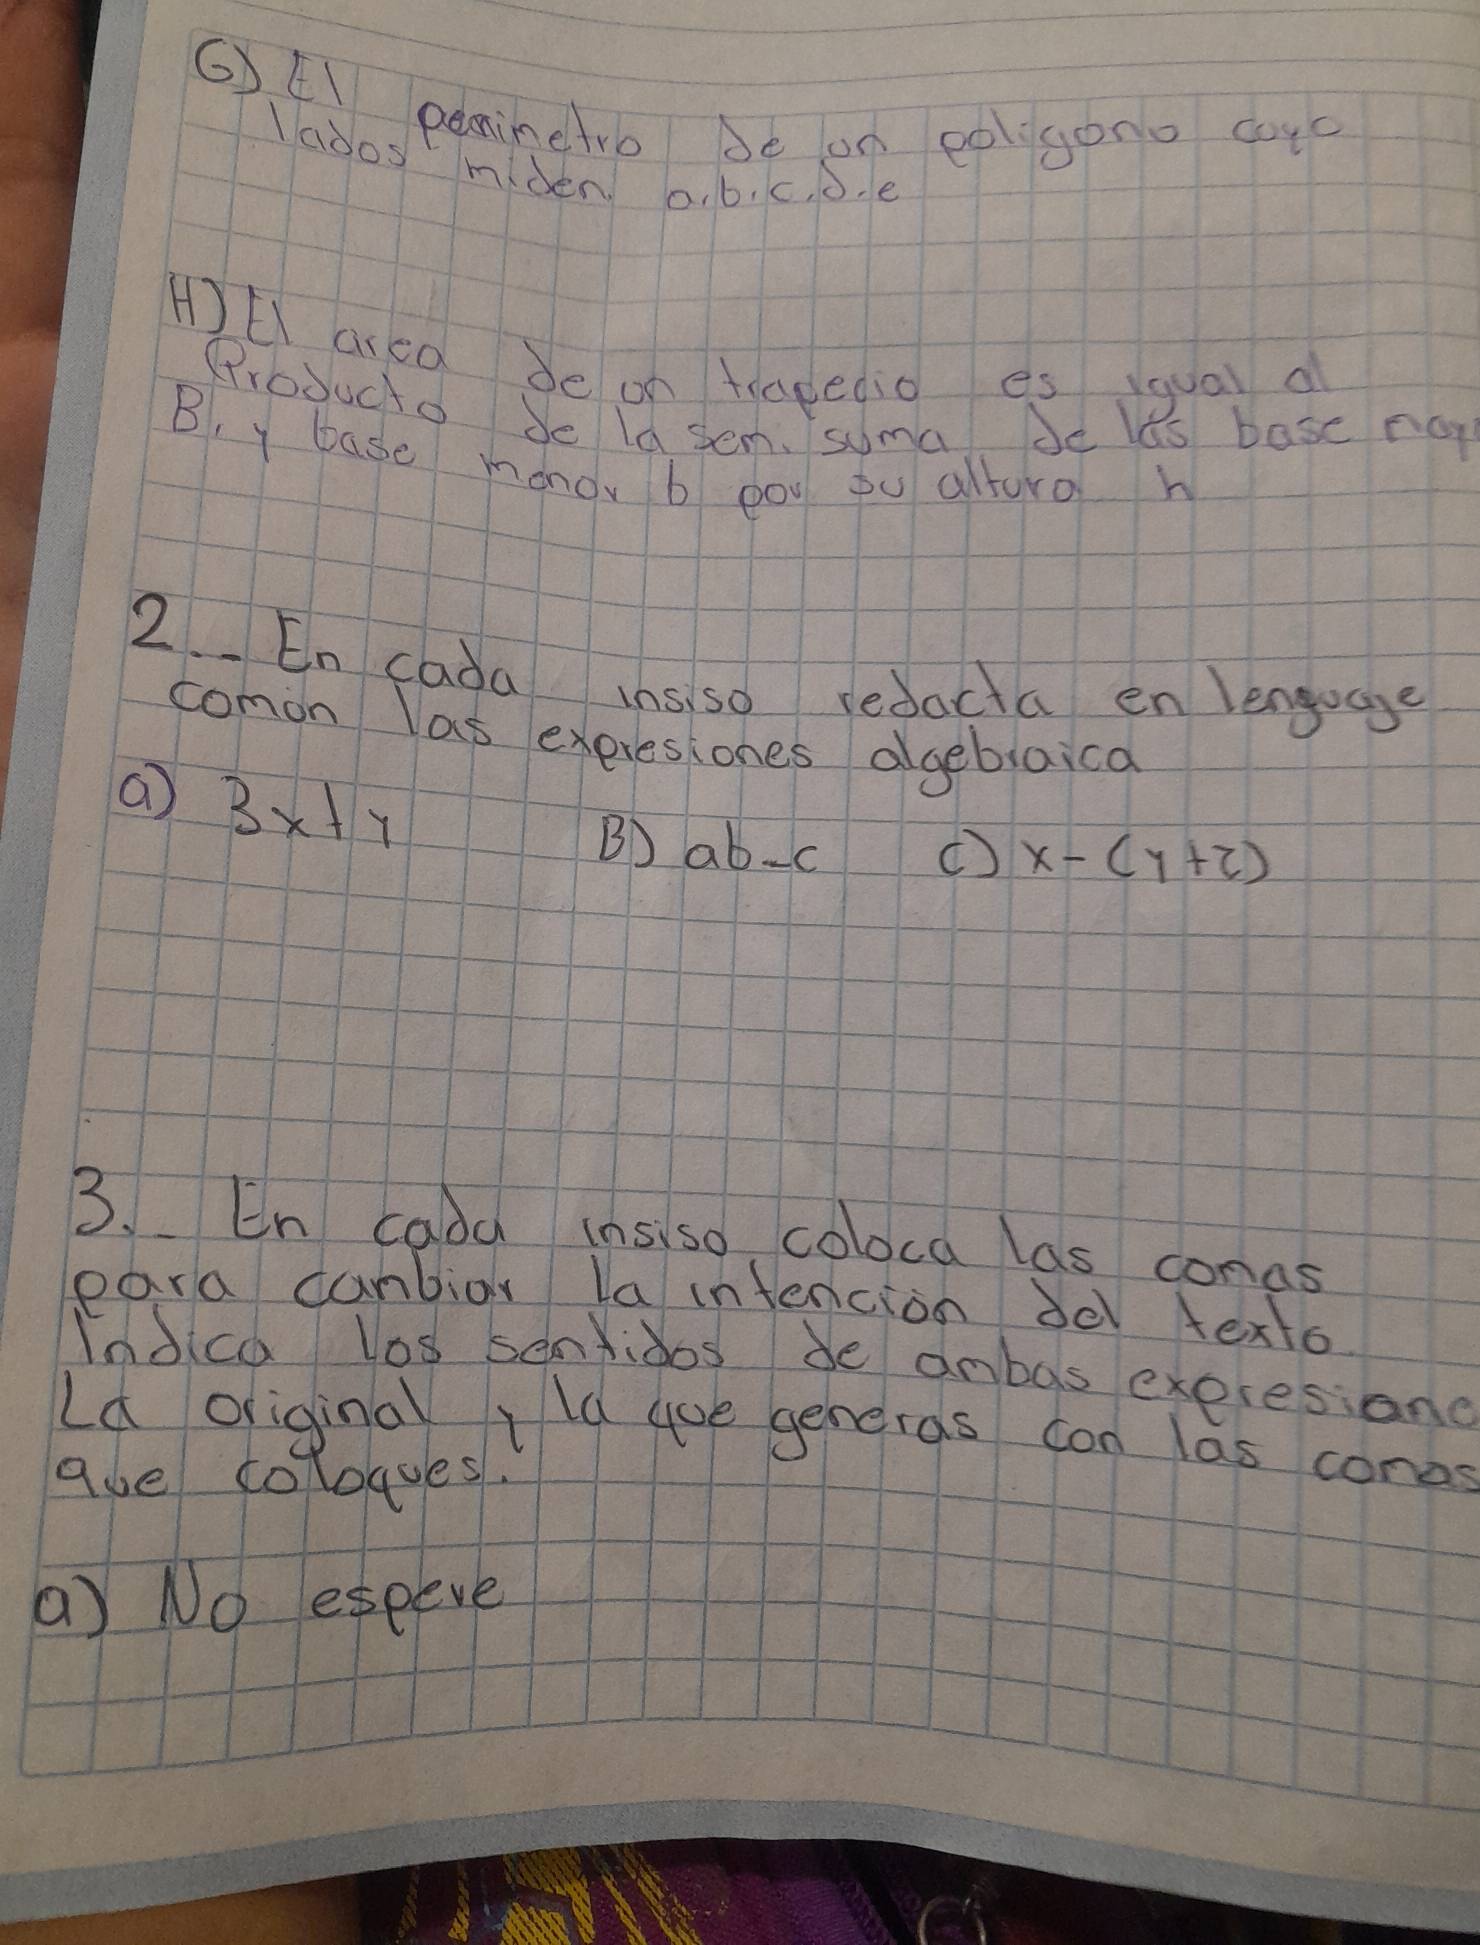 G) El perimetro de un poligono cuyo
lados miden. a.b.c.d.e
H) El area de un trapecio es igual al
Producto de la semi suma de las base may
B. y base menor b por su altura h
2.- En cada insiso redacta en lenguage
común las expresiones algebraica
a) 3x+y B) ab-c C) x-(y+z)
3.- En cada insiso coloca las comas
para canbiar la intención del texto
Indica los sentidos de ambas expresione
La original y la que generas con las comas
que coloques.
a) No espere